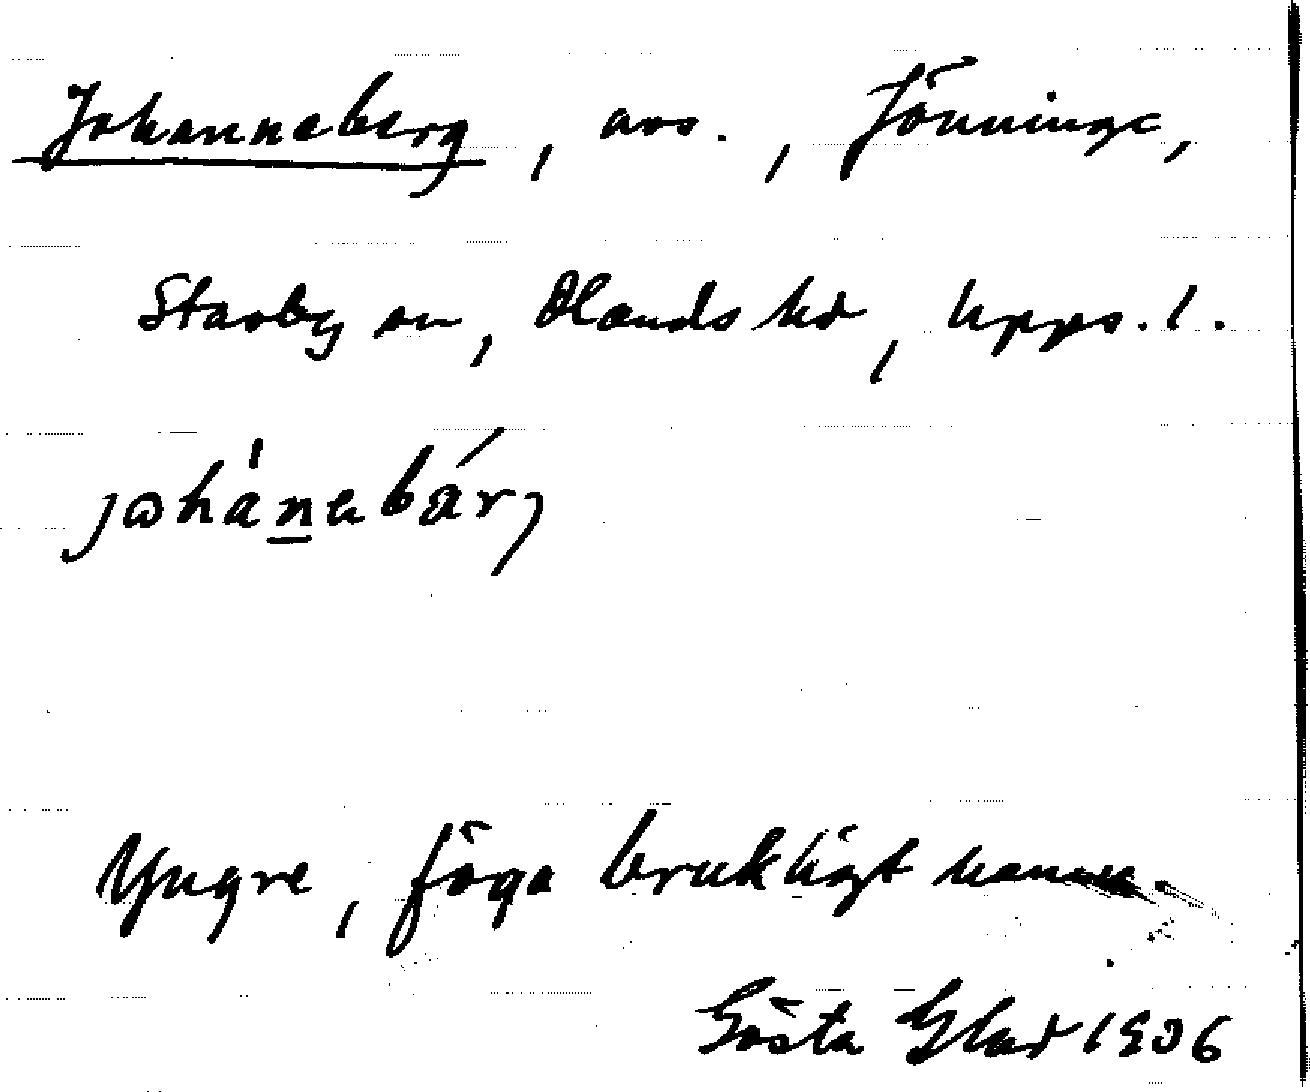 Johanneberg, avs., Jönninge,
Stavby sn, Olands hd, Upps. l.
johánebárj
Yngre, föga brukligt namn.
Gösta Glad 1936